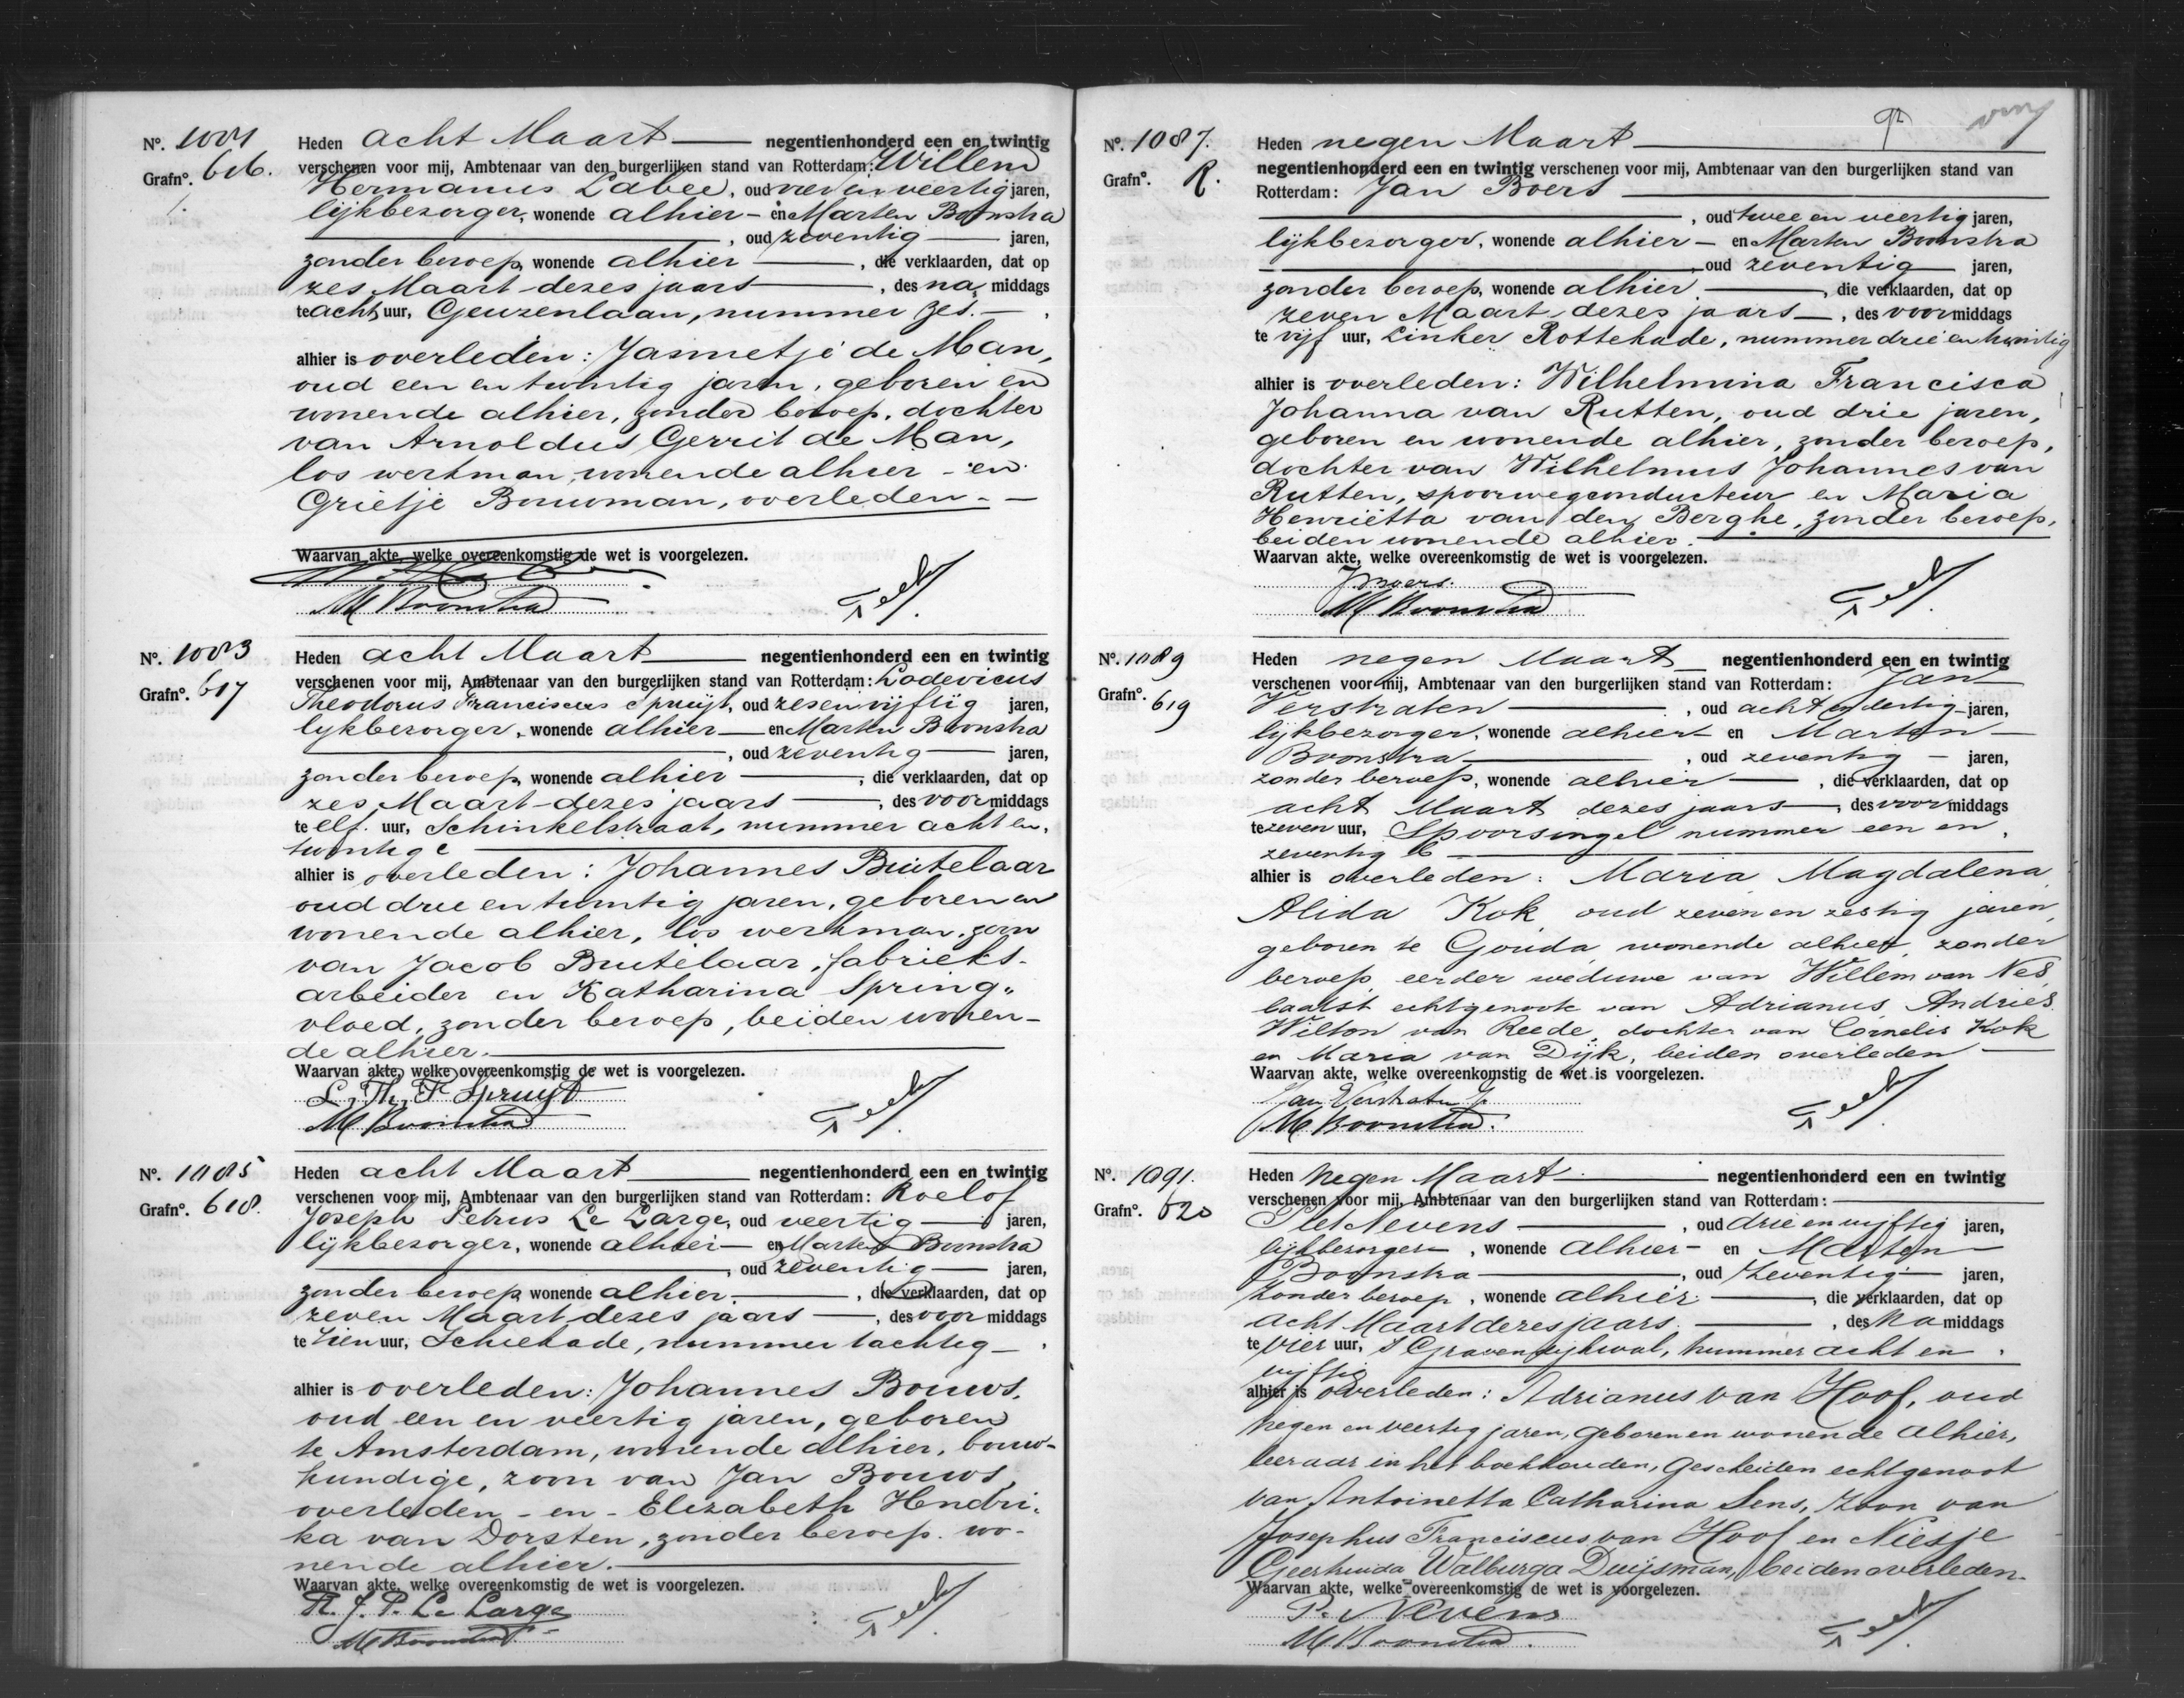 Nº. 1081 Heden acht Maart negentienhonderd een en twintig
Grafnº. 616. verschenen voor mij, Ambtenaar van den burgerlijken stand van Rotterdam: Willem
Hermanus Labee, oud vier en veertig jaren,
lijkbezorger, wonende alhier - en Marten Boonstra
, oud zeventig jaren,
zonder beroep, wonende alhier , die verklaarden, dat op
zes Maart dezes jaars , des na middags
te acht uur, Geuzenlaan, nummer zes.
alhier is overleden: Jannetje de Man,
oud een en twintig jaren, geboren en
wonende alhier, zonder beroep, dochter
van Arnoldus Gerrit de Man,
los werkman, wonende alhier - en
Grietje Bouwman, overleden.
Waarvan akte, welke overeenkomstig de wet is voorgelezen.
M Boonstra
Nº. 1083 Heden acht Maart negentienhonderd een en twintig
Grafnº. 617 verschenen voor mij, Ambtenaar van den burgerlijken stand van Rotterdam: Lodevicus
Theodorus Franciscus Spruijt, oud zes en vijftig jaren,
lijkbezorger, wonende alhier en Marten Boonstra
, oud zeventig jaren,
zonder beroep, wonende alhier , die verklaarden, dat op
zes Maart dezes jaars , des voor middags
te elf uur, Schinkelstraat, nummer acht en
twintig c
alhier is overleden: Johannes Buitelaar
oud drie en twintig jaren, geboren en
wonende alhier, los werkman, zoon
van Jacob Buitelaar, fabrieks-
arbeider en Katharina Spring-
vloed, zonder beroep, beiden wonen-
de alhier.
Waarvan akte, welke overeenkomstig de wet is voorgelezen.
L. Th. F. Spruijt
M Boonstra
Nº. 1085 Heden acht Maart negentienhonderd een en twintig
Grafnº. 618. verschenen voor mij, Ambtenaar van den burgerlijken stand van Rotterdam: Roelof
Joseph Petrus Le Large, oud veertig jaren,
lijkbezorger, wonende alhier en Marten Boonstra
, oud zeventig jaren,
zonder beroep wonende alhier. , die verklaarden, dat op
zeven Maart dezes jaars , des voor middags
te tien uur, Schiekade, nummer tachtig
alhier is overleden: Johannes Bouws,
oud een en veertig jaren, geboren
te Amsterdam, wonende alhier, bouw-
kundige, zoon van Jan Bouws,
overleden - en - Elizabeth Hendri-
ka van Dorsten, zonder beroep. wo-
nende alhier.
Waarvan akte, welke overeenkomstig de wet is voorgelezen.
R. J. P. Le Large
M Boonstra
Nº. 1087. Heden negen Maart
Grafnº. R. negentienhonderd een en twintig verschenen voor mij, Ambtenaar van den burgerlijken stand van
Rotterdam: Jan Boers
, oud twee en veertig jaren,
lijkbezorger, wonende alhier - en Marten Boonstra
, oud zeventig jaren,
zonder beroep, wonende alhier , die verklaarden, dat op
zeven Maart dezes jaars , des voor middags
te vijf uur, Linker Rottekade, nummer drie en twintig
alhier is overleden: Wilhelmina Francisca
Johanna van Rutten, oud drie jaren,
geboren en wonende alhier, zonder beroep,
dochter van Wilhelmus Johannes van
Rutten, spoorwegconducteur en Maria
Henriëtta van den Berghe, zonder beroep,
beiden wonende alhier.
Waarvan akte, welke overeenkomstig de wet is voorgelezen.
J Boers.
M Boonstra
Nº. 1089 Heden negen Maart negentienhonderd een en twintig
Grafnº. 619 verschenen voor mij, Ambtenaar van den burgerlijken stand van Rotterdam: Jan
Verstraten , oud acht en dertig jaren,
lijkbezorger, wonende alhier en Marten
Boonstra , oud zeventig jaren,
zonder beroep, wonende alhier , die verklaarden, dat op
acht Maart dezes jaars , des voor middags
te zeven uur, Spoorsingel nummer een en
zeventig b
alhier is overleden: Maria Magdalena
Alida Kok, oud zeven en zestig jaren,
geboren te Gouda, wonende alhier, zonder
beroep, eerder weduwe van Willem van Nes,
laatst echtgenoote van Adrianus Andries
Wilton van Reede, dochter van Cornelis Kok
en Maria van Dijk, beiden overleden
Waarvan akte, welke overeenkomstig de wet is voorgelezen.
Jan Verstraten Jr
M Boonstra.
Nº. 1091. Heden Negen Maart negentienhonderd een en twintig
Grafnº. 620 verschenen voor mij, Ambtenaar van den burgerlijken stand van Rotterdam:
Piet Nevens , oud drie en vijftig jaren,
lijkbezorger , wonende alhier - en Marten
Boonstra , oud Zeventig jaren,
Zonder beroep , wonende alhier. , die verklaarden, dat op
acht Maart dezes jaars. , des Na middags
te vier uur, 's Gravendijkwal, nummer acht en
vijftig
alhier is overleden: Adrianus van Hoof, oud
negen en veertig jaren, geboren en wonende alhier,
leeraar in het boekhouden, gescheiden echtgenoot
van Antoinetta Catharina Sens, zoon van
Josephus Franciscus van Hoof en Niesje
Geertruida Walburga Duijsman, beiden overleden.
Waarvan akte, welke overeenkomstig de wet is voorgelezen.
P. Nevens
M Boonstra.